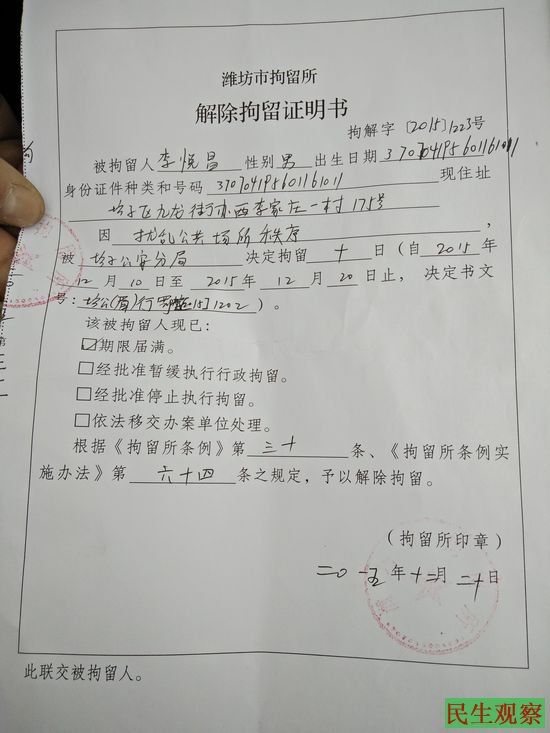 潍坊市拘留所
解除拘留证明书
拘解字〔2015〕1223号
被拘留人 李悦昌 性别 男 出生日期 370704195601161011
身份证件种类和号码 370704195601161011 现住址
坊子区九龙街办西李家庄一村175号
因 扰乱公共场所秩序,
被 坊子公安分局 决定拘留 十 日(自 2015 年
12 月 10 日至 2015 年 12 月 20 日止,决定书文
号:坊公(眉)行 15]1202)。
该被拘留人现已:
☑期限届满。
□经批准暂缓执行行政拘留。
□经批准停止执行拘留。
□依法移交办案单位处理。
根据《拘留所条例》第 三十 条、《拘留所条例实
施办法》第 六十四 条之规定,予以解除拘留。
(拘留所印章)
二〇一五年十二月二十日
此联交被拘留人。
民生观察